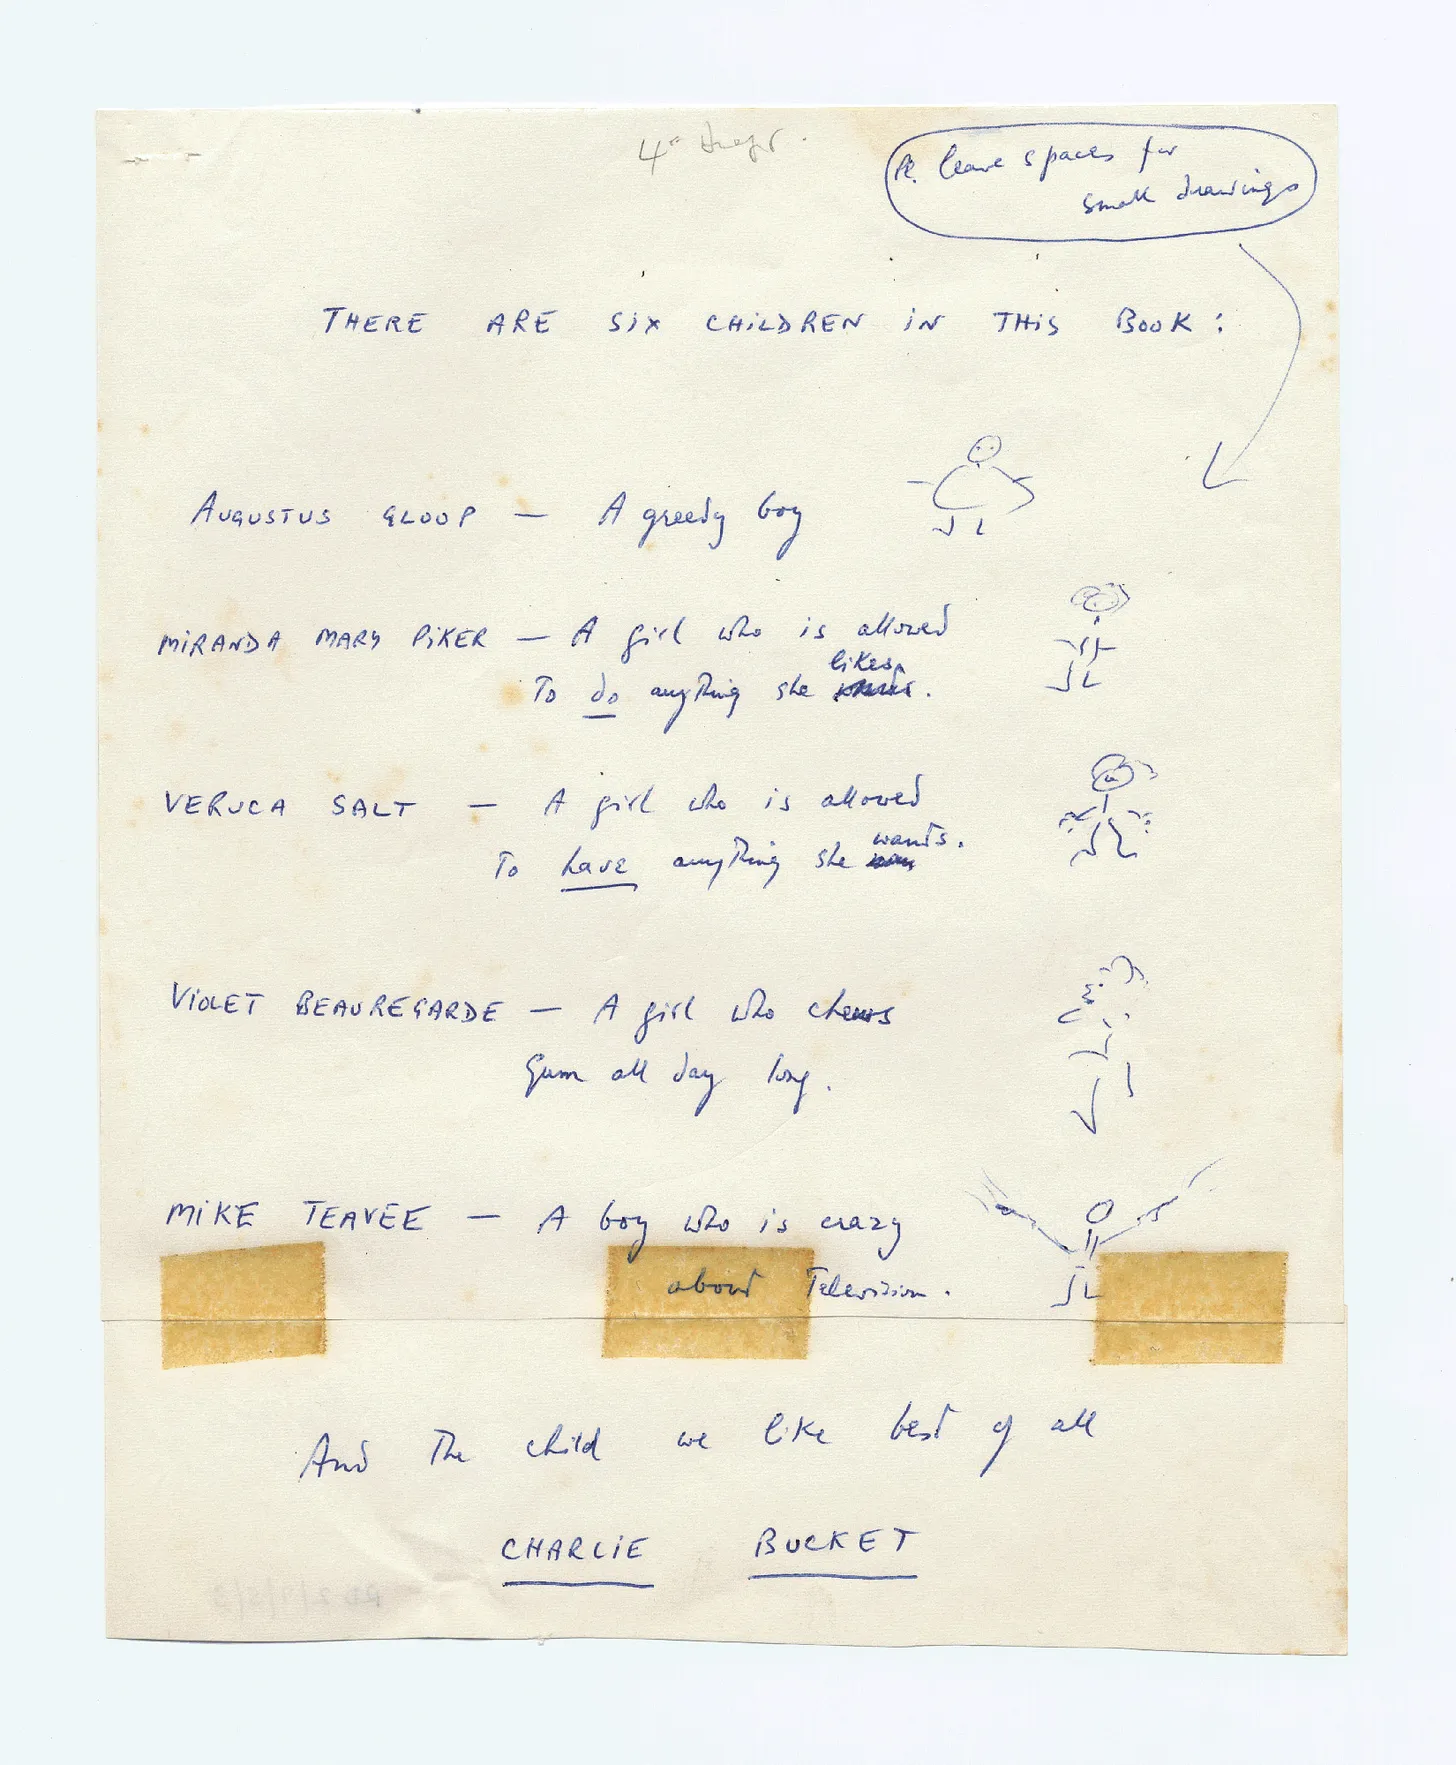 4th Draft.
Pl. leave spaces for
small drawings
THERE ARE SIX CHILDREN IN THIS BOOK:
AUGUSTUS GLOOP — A greedy boy
MIRANDA MARY PIKER — A girl who is allowed
likes
To do anything she .
VERUCA SALT — A girl who is allowed
wants.
To have anything she
VIOLET BEAUREGARDE — A girl who chews
Gum all day long.
MIKE TEAVEE — A boy who is crazy
about Television.
And The child we like best of all
CHARLIE BUCKET